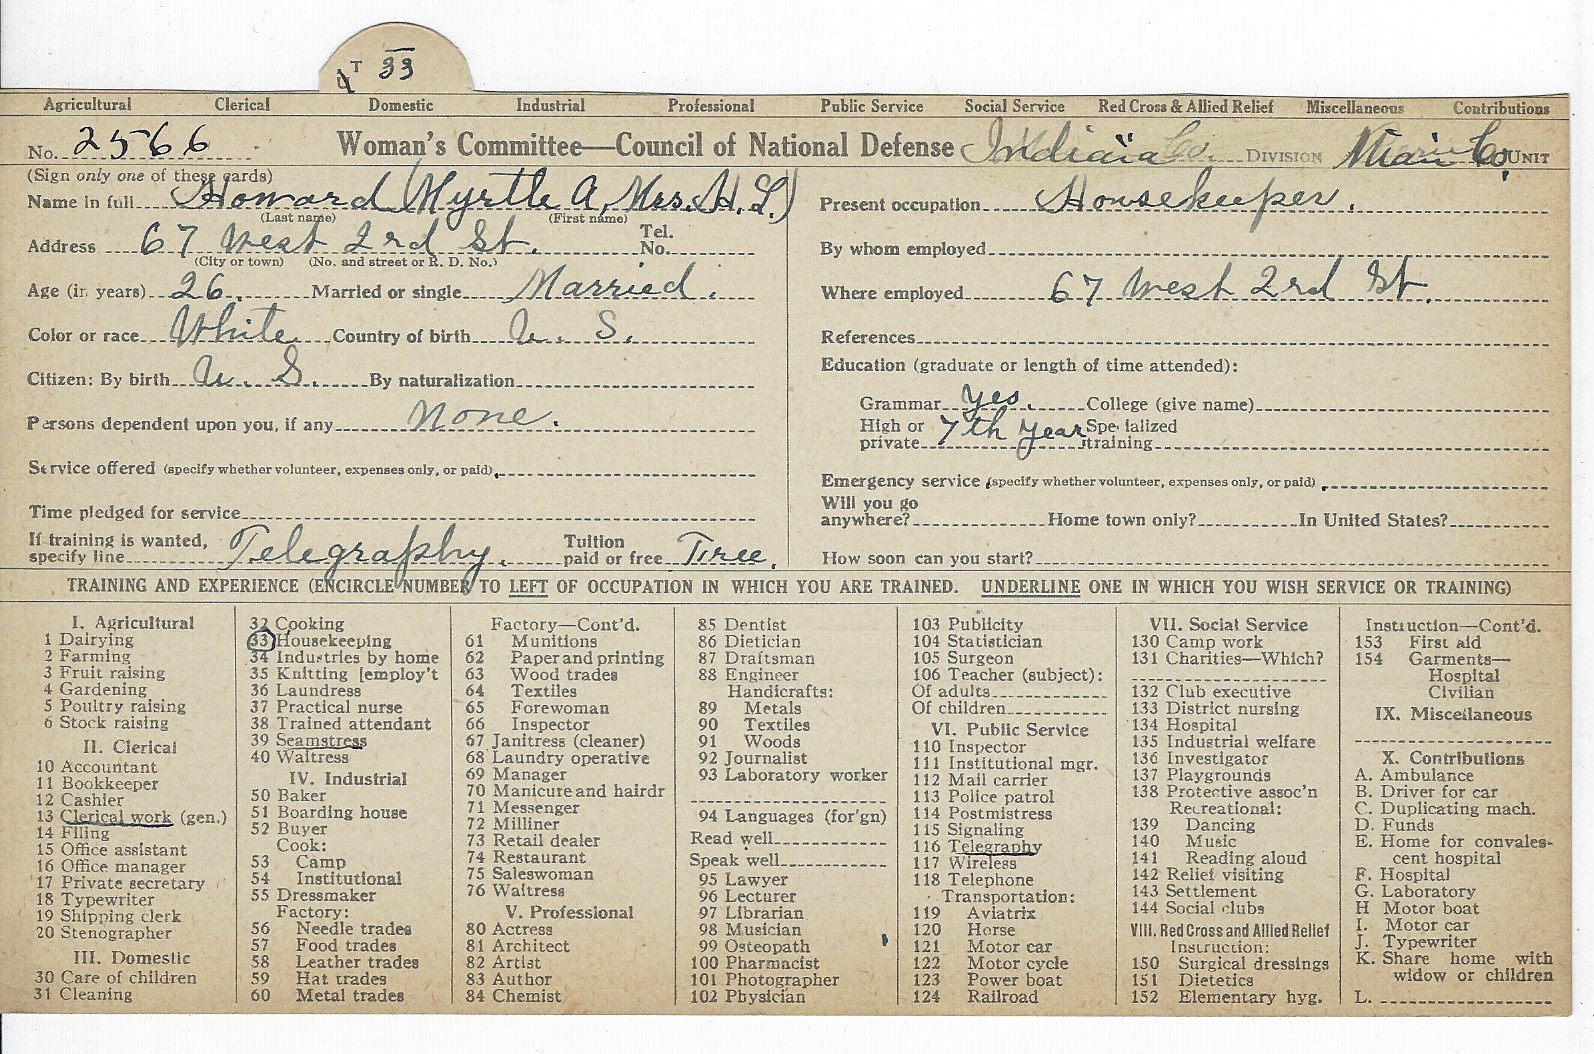 T 33
Agricultural Clerical Domestic Industrial Professional Public Service Social Service Red Cross & Allied Relief Miscellaneous Contributions
No. 2566 Woman's Committee—Council of National Defense Indiana DIVISION Miami Co. UNIT
(Sign only one of these cards)
Name in full Howard (Myrtle A, Mrs. H. L.)
(Last name) (First name)
Address 67 West 2rd St. Tel. No.
(City or town) (No. and street or R. D. No.)
Age (in years) 26. Married or single Married.
Color or race White Country of birth U. S.
Citizen: By birth U. S. By naturalization
Persons dependent upon you, if any None.
Service offered (specify whether volunteer, expenses only, or paid)
Time pledged for service
If training is wanted, specify line Telegraphy. Tuition paid or free Free.
Present occupation Housekeeper.
By whom employed
Where employed 67 West 2rd St.
References
Education (graduate or length of time attended):
Grammar Yes. College (give name)
High or private 7th Year Specialized training
Emergency service (specify whether volunteer, expenses only, or paid)
Will you go anywhere? Home town only? In United States?
How soon can you start?
TRAINING AND EXPERIENCE (ENCIRCLE NUMBER TO LEFT OF OCCUPATION IN WHICH YOU ARE TRAINED. UNDERLINE ONE IN WHICH YOU WISH SERVICE OR TRAINING)
I. Agricultural
1 Dairying
2 Farming
3 Fruit raising
4 Gardening
5 Poultry raising
6 Stock raising
II. Clerical
10 Accountant
11 Bookkeeper
12 Cashier
13 Clerical work (gen.)
14 Filing
15 Office assistant
16 Office manager
17 Private secretary
18 Typewriter
19 Shipping clerk
20 Stenographer
III. Domestic
30 Care of children
31 Cleaning
32 Cooking
33 Housekeeping
34 Industries by home
35 Knitting [employ't
36 Laundress
37 Practical nurse
38 Trained attendant
39 Seamstress
40 Waitress
IV. Industrial
50 Baker
51 Boarding house
52 Buyer
Cook:
53 Camp
54 Institutional
55 Dressmaker
Factory:
56 Needle trades
57 Food trades
58 Leather trades
59 Hat trades
60 Metal trades
Factory—Cont'd.
61 Munitions
62 Paper and printing
63 Wood trades
64 Textiles
65 Forewoman
66 Inspector
67 Janitress (cleaner)
68 Laundry operative
69 Manager
70 Manicure and hairdr
71 Messenger
72 Milliner
73 Retail dealer
74 Restaurant
75 Saleswoman
76 Waitress
V. Professional
80 Actress
81 Architect
82 Artist
83 Author
84 Chemist
85 Dentist
86 Dietician
87 Draftsman
88 Engineer
Handicrafts:
89 Metals
90 Textiles
91 Woods
92 Journalist
93 Laboratory worker
94 Languages (for'gn)
Read well
Speak well
95 Lawyer
96 Lecturer
97 Librarian
98 Musician
99 Osteopath
100 Pharmacist
101 Photographer
102 Physician
103 Publicity
104 Statistician
105 Surgeon
106 Teacher (subject):
Of adults
Of children
VI. Public Service
110 Inspector
111 Institutional mgr.
112 Mail carrier
113 Police patrol
114 Postmistress
115 Signaling
116 Telegraphy
117 Wireless
118 Telephone
Transportation:
119 Aviatrix
120 Horse
121 Motor car
122 Motor cycle
123 Power boat
124 Railroad
VII. Social Service
130 Camp work
131 Charities—Which?
132 Club executive
133 District nursing
134 Hospital
135 Industrial welfare
136 Investigator
137 Playgrounds
138 Protective assoc'n
Recreational:
139 Dancing
140 Music
141 Reading aloud
142 Relief visiting
143 Settlement
144 Social clubs
VIII. Red Cross and Allied Relief
Instruction:
150 Surgical dressings
151 Dietetics
152 Elementary hyg.
Instruction—Cont'd.
153 First aid
154 Garments—
Hospital
Civilian
IX. Miscellaneous
X. Contributions
A. Ambulance
B. Driver for car
C. Duplicating mach.
D. Funds
E. Home for convales-
cent hospital
F. Hospital
G. Laboratory
H Motor boat
I. Motor car
J. Typewriter
K. Share home with
widow or children
L.